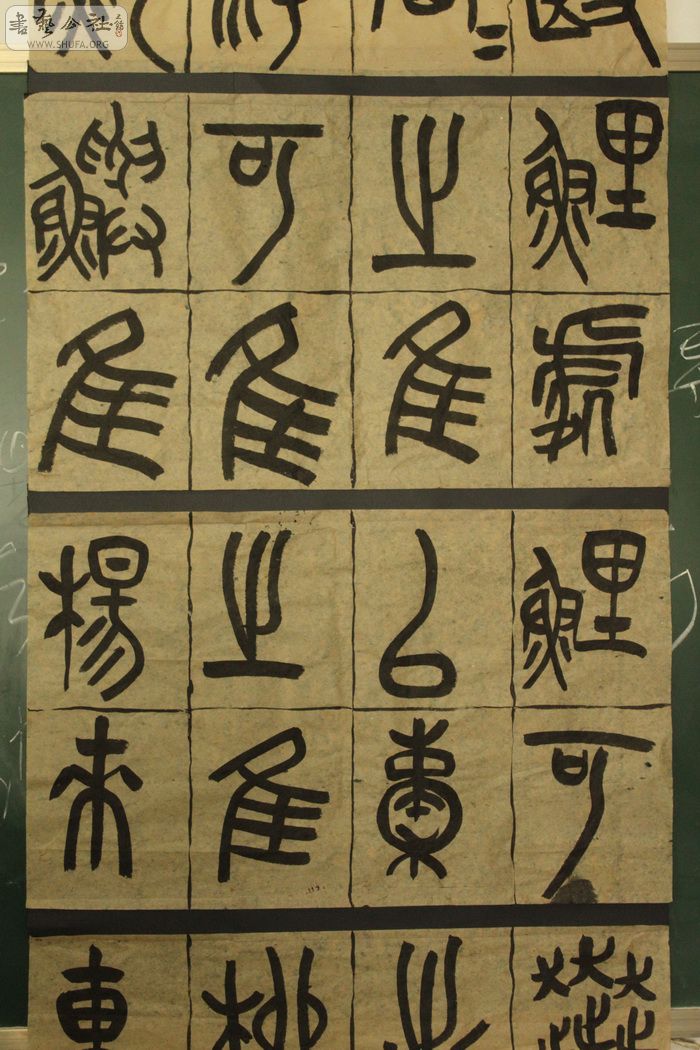 書藝公社
WWW.SHUFA.ORG
鯉處
之隹
可隹
鱮隹
鯉可
㠯橐
之隹
楊來